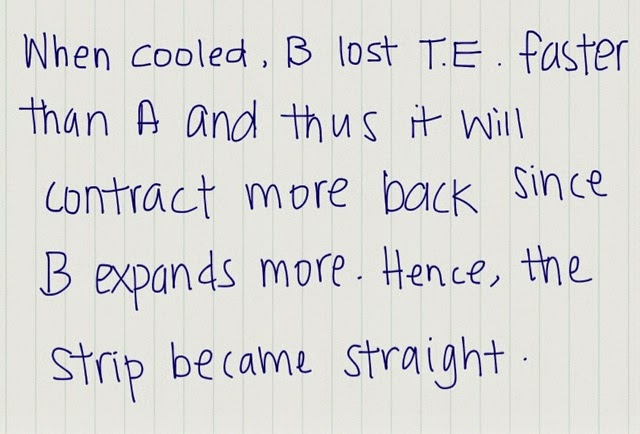 When cooled, B lost T.E. faster
than A and thus it will
contract more back since
B expands more. Hence, the
strip became straight.